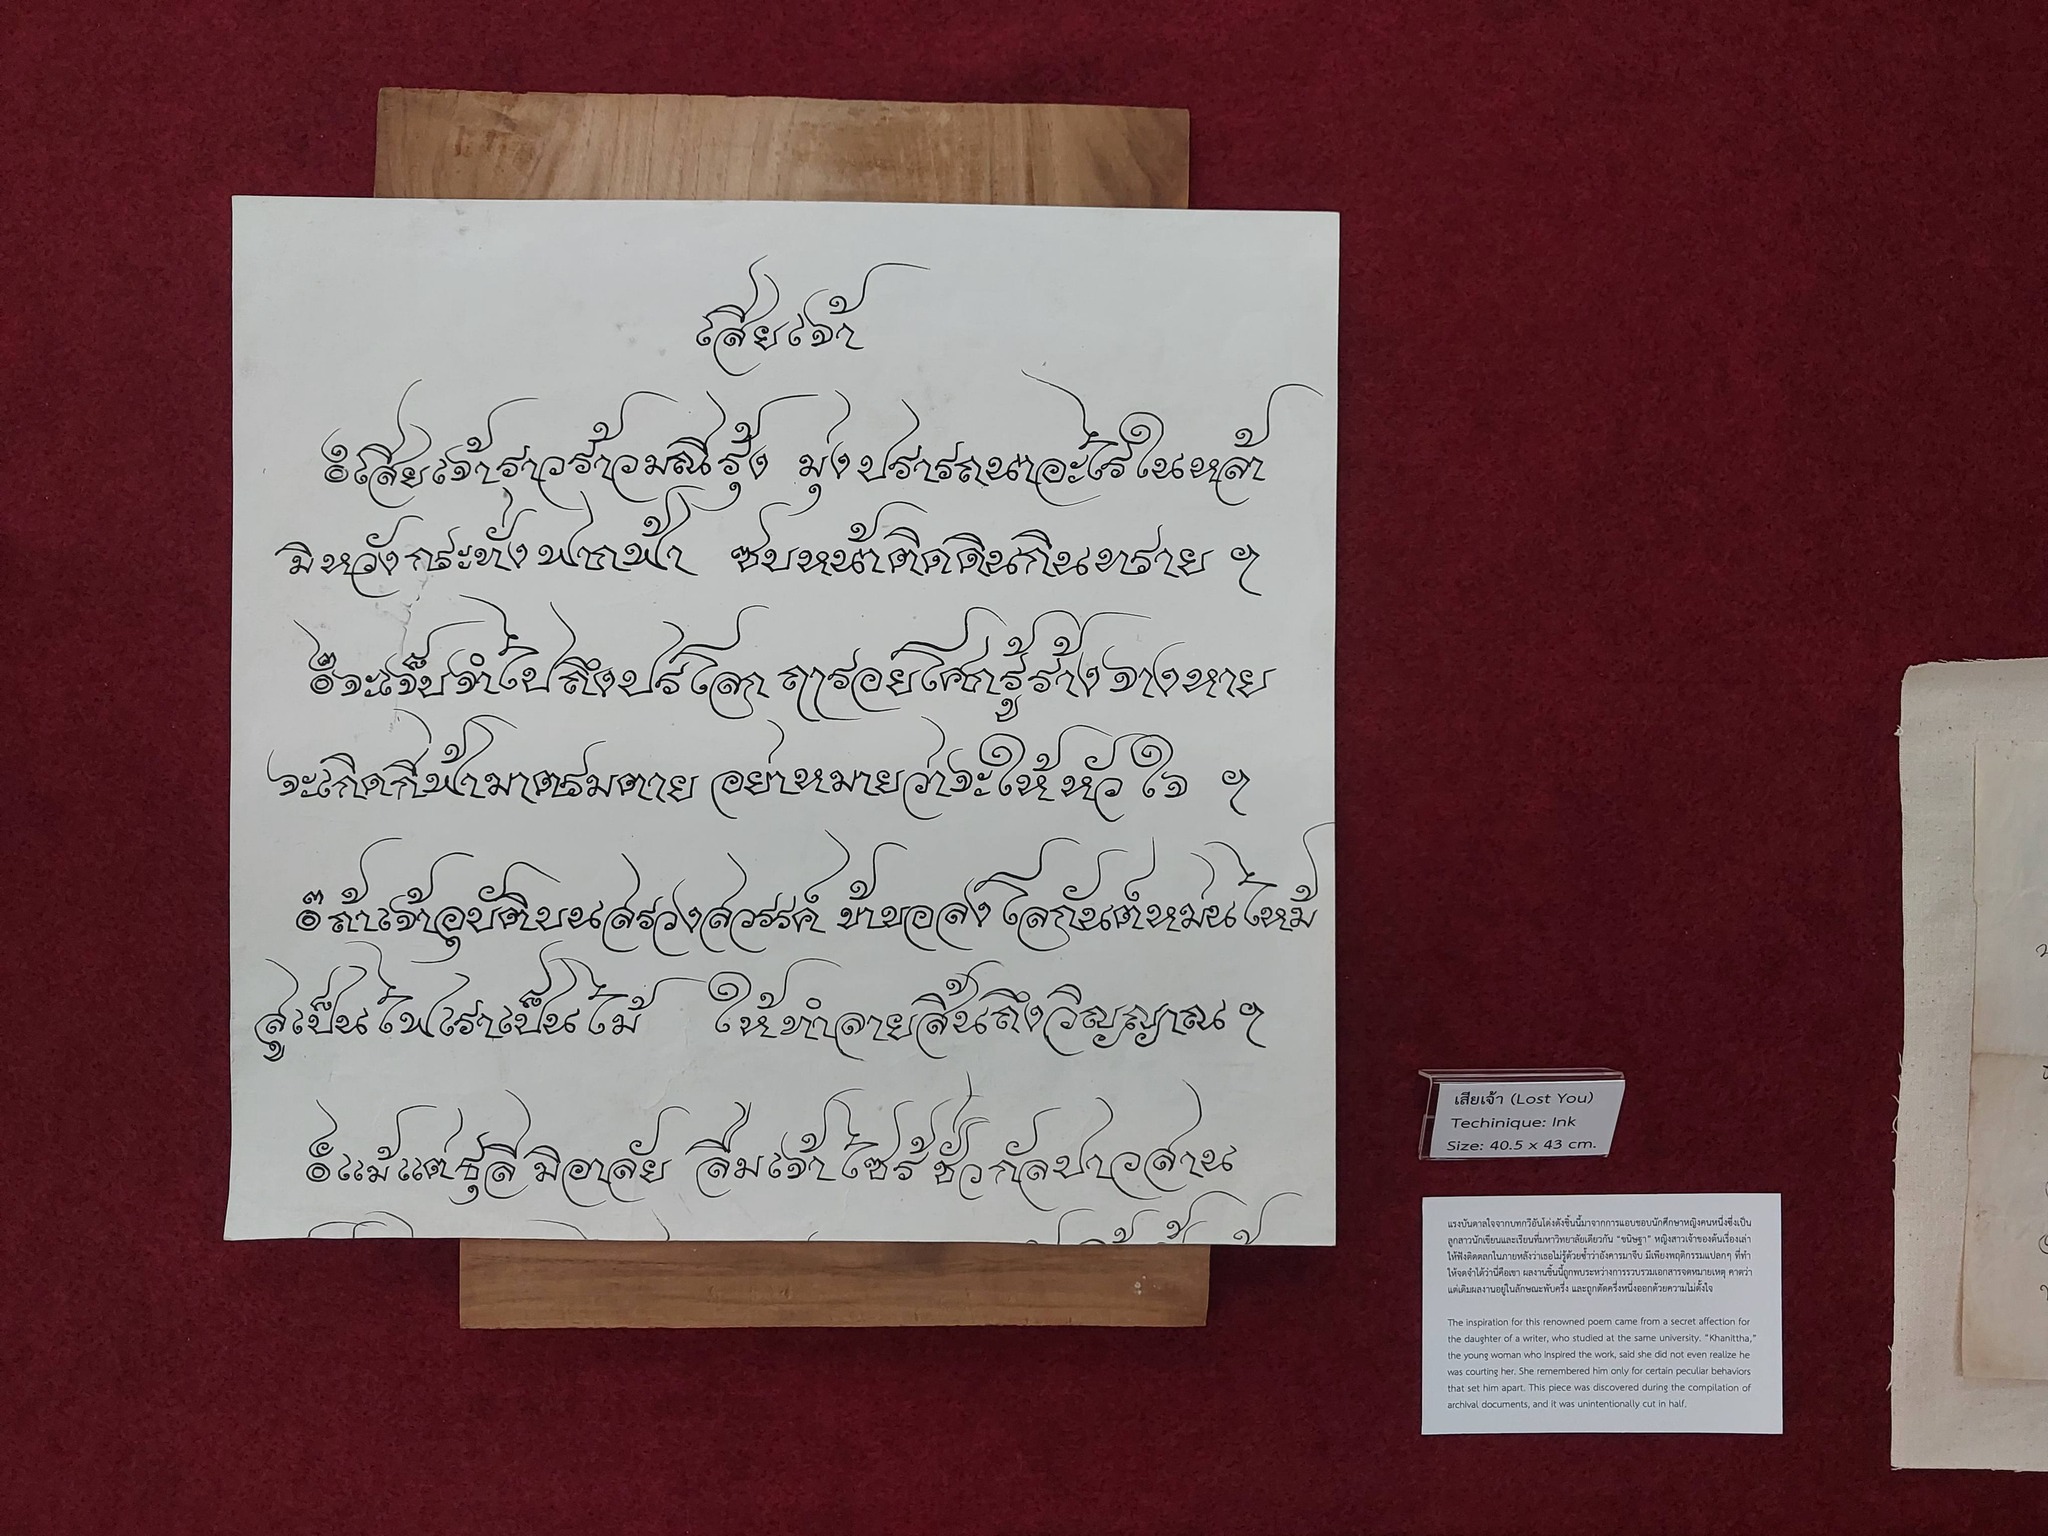 เสียเจ้า
๏ เสียเจ้าราวร้าวมณีรุ้ง มุ่งปรารถนาอะไรในหล้า
มิหวังกระทั่งฟากฟ้า ซบหน้าติดดินกินทราย ฯ
๏ จะเจ็บจำไปถึงปรโลก ฤารอยโศกรู้ร้างจางหาย
จะเกิดกี่ฟ้ามาตรมตาย อย่าหมายว่าจะให้หัวใจ ฯ
๏ ถ้าเจ้าอุบัติบนสรวงสวรรค์ ข้าขอลงโลกันต์หม่นไหม้
สูเป็นไฟเราเป็นไม้ ให้ทำลายสิ้นถึงวิญญาณ ฯ
๏ แม้แต่ธุลีมิอาลัย ลืมเจ้าไซร้ชั่วกัลปาวสาน
เสียเจ้า (Lost You)
Techinique: Ink
Size: 40.5 x 43 cm.
แรงบันดาลใจจากบทกวีอันโด่งดังชิ้นนี้มาจากการแอบชอบนักศึกษาหญิงคนหนึ่งซึ่งเป็น
ลูกสาวนักเขียนและเรียนที่มหาวิทยาลัยเดียวกัน "ขนิษฐา" หญิงสาวเจ้าของต้นเรื่องเล่า
ให้ฟังติดตลกในภายหลังว่าเธอไม่รู้ด้วยซ้ำว่าอังคารมาจีบ มีเพียงพฤติกรรมแปลกๆ ที่ทำ
ให้จดจำได้ว่านี่คือเขา ผลงานชิ้นนี้ถูกพบระหว่างการรวบรวมเอกสารจดหมายเหตุ คาดว่า
แต่เดิมผลงานอยู่ในลักษณะพับครึ่ง และถูกตัดครึ่งหนึ่งออกด้วยความไม่ตั้งใจ
The inspiration for this renowned poem came from a secret affection for
the daughter of a writer, who studied at the same university. "Khanittha,"
the young woman who inspired the work, said she did not even realize he
was courting her. She remembered him only for certain peculiar behaviors
that set him apart. This piece was discovered during the compilation of
archival documents, and it was unintentionally cut in half.